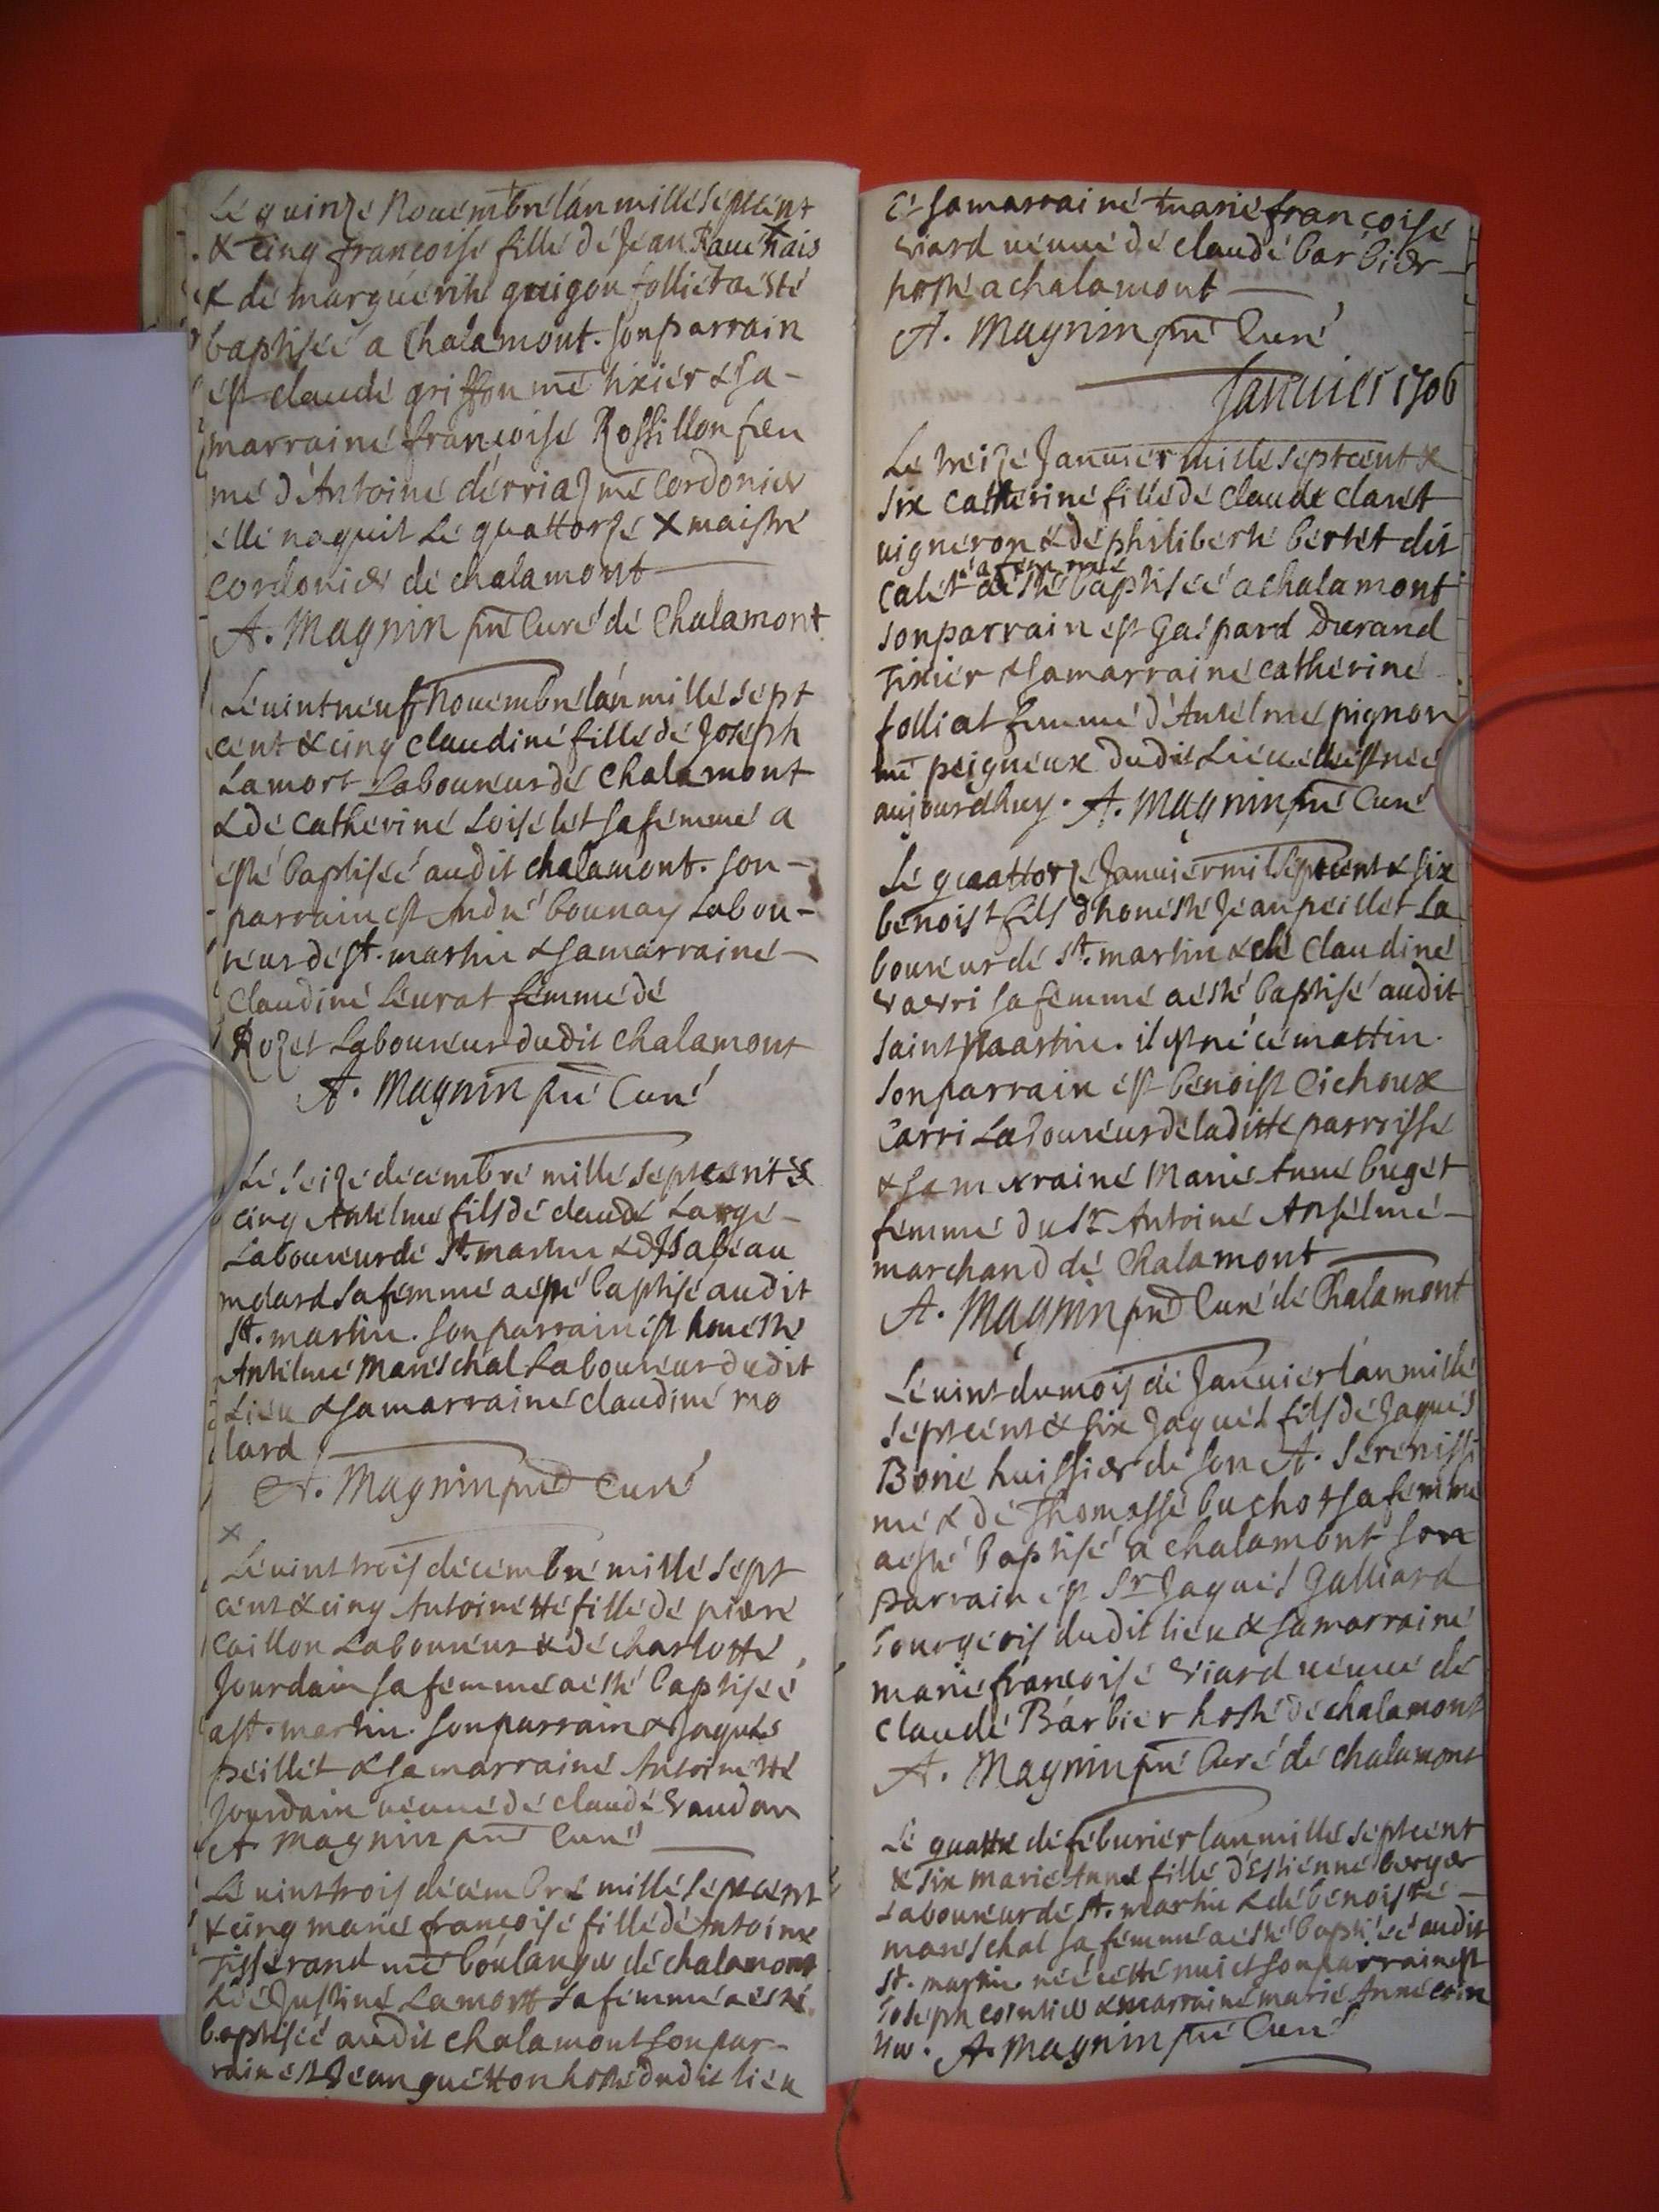 Le quinze Nouembre lan mille septcent
& cinq francoise fille de Jean Rauenais
& de marguerite guigon folliet a esté
baptisée a Chalamont. son parrain
est claude griffon me tixier & sa -
marraine francoise Rossillon fem
me d'Antoine derriaz me cordonier
elle naquit le quattorze X maistre
cordonier de chalamont
A. Magnin pre Curé de Chalamont
Le uintneuf Nouembre lan mille sept
cent & cinq claudine fille de Joseph
Lamort Laboureur de Chalamont
& de Catherine Loiselet sa femme a
esté baptisée audit chalamont. son -
parrain est André bounay Labou -
reur de st. martin & sa marraine -
Claudine Leurat femme de
Rozet Laboureur dudit Chalamont
A. Magnin pre Curé
Le seize decembre mille septcent &
cinq Antelme fils de claude Large -
Laboureur de St. martin & d'Isabeau
molard sa femme a esté baptisé audit
St. martin. son parrain est honeste
Antelme Mareschal Laboureur dudit
Lieu & sa marraine claudine mo
lard
A. Magnin pre Curé
X
Le uint trois decembre mille sept
cent & cinq Antoinette fille de pierre
Caillon Laboureur & de charlotte
Jourdain sa femme a esté baptisée
a st. martin. son parrain & Jaques
peillet & sa marraine Antoinette
Jourdain ueuue de claude Vaudan
A Magnin pre Curé
Le uint trois decembre mille septcent
& cinq marie francoise fille de Antoine
Tisserand me boulanger de chalamont
& de Justine Lamort sa femme a esté
baptisée audit chalamont son par -
rain est Jean guetton hoste dudit lieu
Et sa marraine marie francoise
Viard ueuue de claude barbier
hoste a chalamont
A. Magnin pre Curé
Januier 1706
Le treize Januier mille septcent &
six Catherine fille de Claude claret
uigneron & de philiberte bertet dit
calet sa femme
a esté baptisée a chalamont
son parrain est Gaspard Durand
Tixier & sa marraine catherine
folliat femme d'Antelme pignon
me peigneux dudit Lieu elle est née
aujourdhuy. A. Magnin pre Curé
Le quattorze Januier mil septcent & six
benoist fils dhoneste Jean peillet La
boureur de St. martin & de Claudine
Varri sa femme a esté baptisé audit
saint Martin. il est né ce mattin.
son parrain est benoist Cichoux
Carri Laboureur de laditte parroisse
& sa marraine Marie Anne buget
femme du Sr Antoine Anselme -
marchand de Chalamont
A. Magnin pre Curé de Chalamont
Le uint du mois de Januier lan mille
septcent & six Jaques fils de Jaques
Borie huissier de son A. Serenissi
me & de Thomasse buchot sa femme
a esté baptisé a chalamont son
parrain est Sr Jaques Galliard
bourgeois dudit lieu & sa marraine
marie francoise Viard ueuue de
Claude Barbier hoste de chalamont
A. Magnin pre Curé de Chalamont
Le quatre de feburier lan mille septcent
& six marie Anne fille d'Estienne berger
Laboureur de St. martin & de benoiste -
mareschal sa femme a esté baptisée audit
St. martin née cette nuict son parrain est
Joseph & marraine marie Anne
A. Magnin pre Curé